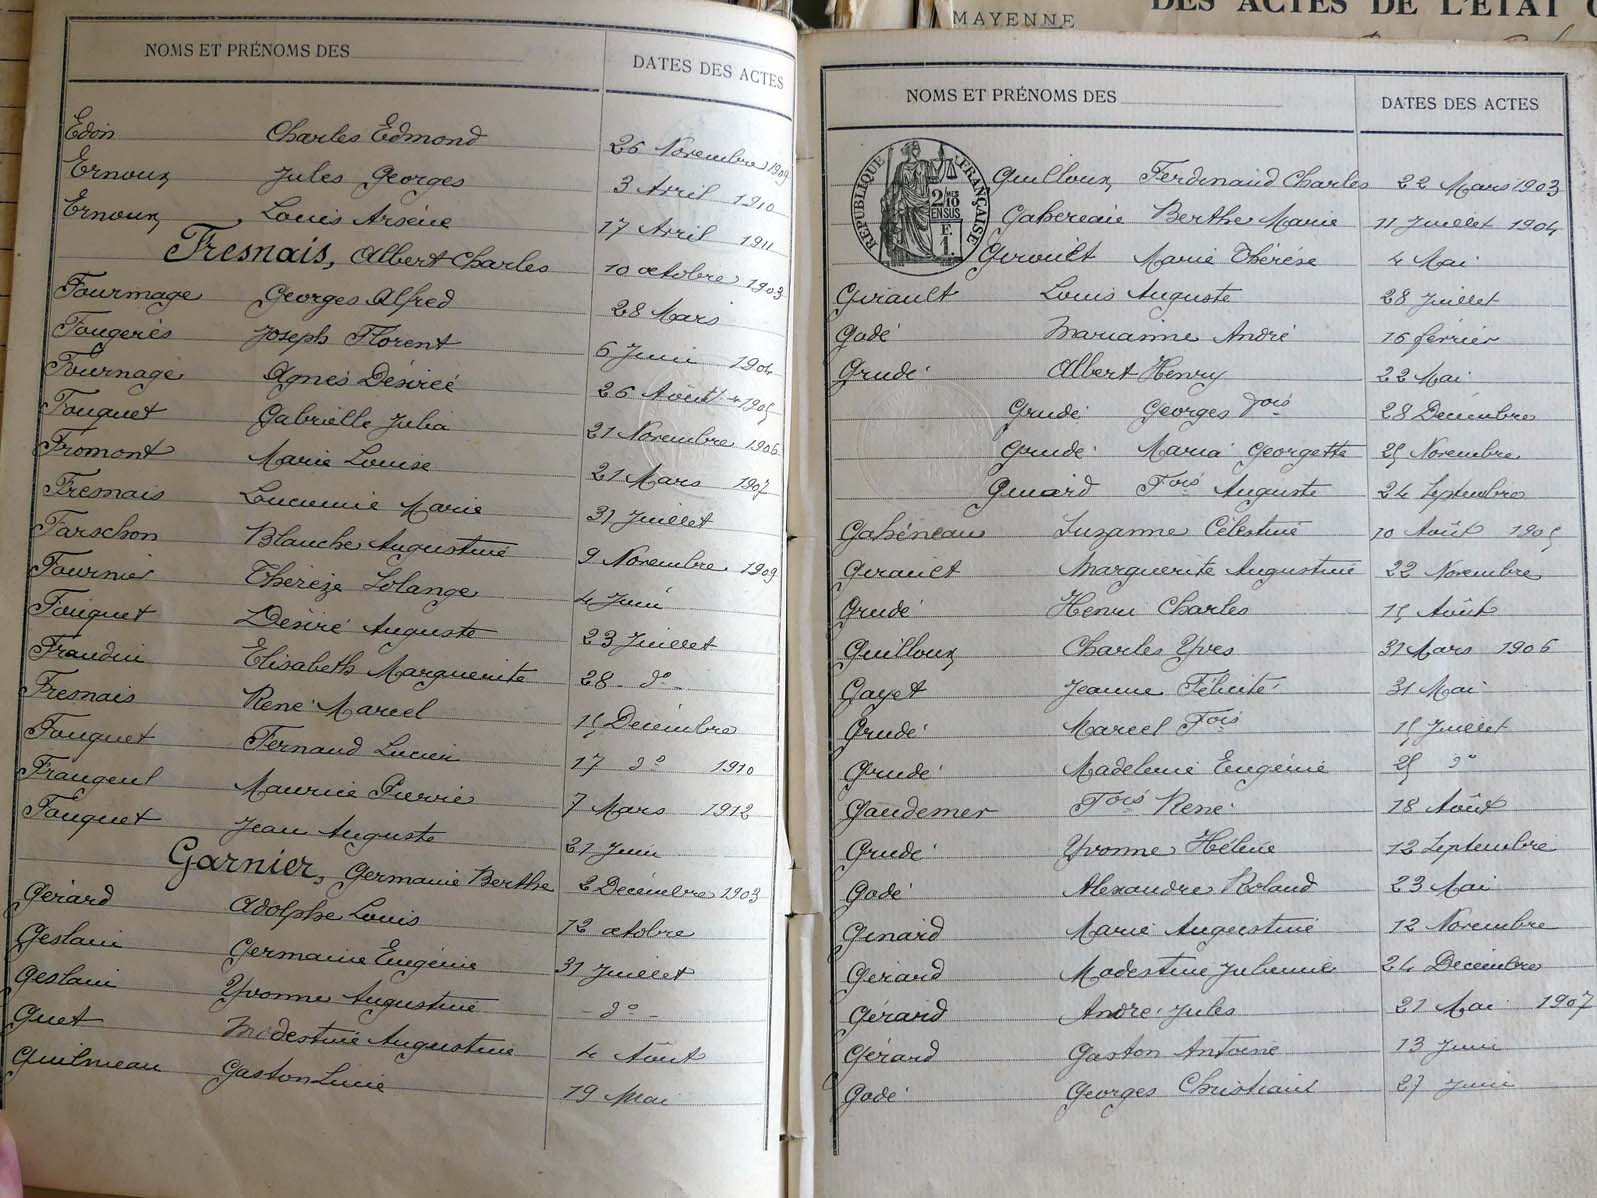 MAYENNE
DES ACTES DE L'ÉTAT
NOMS ET PRÉNOMS DES
DATES DES ACTES
Edon Charles Edmond 26 Novembre 1909
Ernoux Jules Georges 3 Avril 1910
Ernoux, Louis Arsène 17 Avril 1911
Fresnais, Albert Charles 10 octobre 1903
Fourmage Georges Alfred 28 Mars
Fougerès Joseph Florent 6 Juin 1904
Fournage Agnès Désirée 26 Août 1905
Fouquet Gabrielle Julia 21 Novembre 1906
Fromont Marie Louise 21 Mars 1907
Fresnais Marie 31 Juillet
Farschon Blanche Augustine 9 Novembre 1909
Fournier Thérèze Solange 4 Juin
Fouquet Désiré Auguste 23 Juillet
Fraudin Elisabeth Marguerite 28 - do -
Fresnais René Marcel 15 Décembre
Fouquet Fernand Lucien 17 do 1910
Fraugeul Maurice Pierre 7 Mars 1912
Fouquet Jean Auguste 21 Juin
Garnier, Germaine Berthe 2 Décembre 1903
Gérard Adolphe Louis 12 octobre
Geslain Germaine Eugénie 31 Juillet
Geslain Yvonne Augustine - do -
Guet Modestine Augustine 4 Août
Guilmeau Gaston Lucie 19 Mai
NOMS ET PRÉNOMS DES
DATES DES ACTES
RÉPUBLIQUE FRANÇAISE
2/10 EN SUS
F. 1.
Guilloux Ferdinand Charles 22 Mars 1903
Gahereaie Berthe Marie 11 Juillet 1904
Girouët Marie Thérèse 4 Mai
Girault Louis Auguste 28 Juillet
Godé Marianne André 16 février
Grudé Albert Henry 22 Mai
Grudé Georges Fois 28 Décembre
Grudé Maria Georgette 25 Novembre
Fois Auguste 24 Septembre
Gahéneau Suzanne Célestine 10 Août 1905
Girault Marguerite Augustine 22 Novembre
Grudé Henri Charles 15 Août
Guilloux Charles Yves 31 Mars 1906
Gayet Jeanne Félicité 31 Mai
Grudé Marcel Fois 15 Juillet
Grudé Madeleine Eugénie 25 do
Gaudemer Fois René 18 Août
Grudé Yvonne Hélène 12 Septembre
Godé Alexandre Roland 23 Mai
Ginard Marie Augustine 12 Novembre
Gérard Modestine Julienne 24 Décembre
Gérard André Jules 21 Mai 1907
Gérard Gaston Antoine 13 Juin
Godé Georges Christian 27 Juin